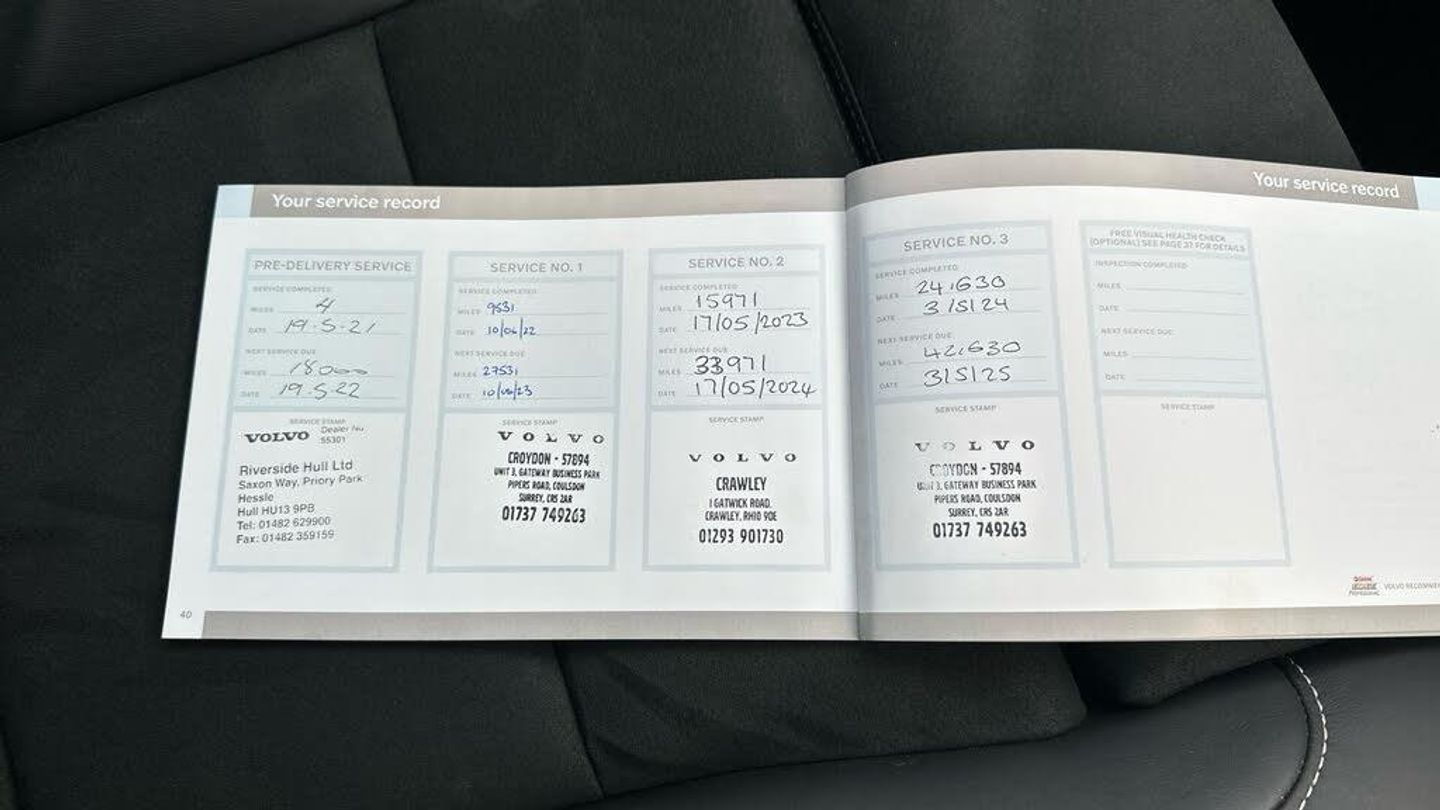 Your service record
PRE-DELIVERY SERVICE
SERVICE COMPLETED
MILES 4
DATE 19.5.21
NEXT SERVICE DUE
MILES 18000
DATE 19.5.22
SERVICE STAMP
VOLVO Dealer No
55301
Riverside Hull Ltd
Saxon Way, Priory Park
Hessle
Hull HU13 9PB
Tel: 01482 629900
Fax: 01482 359159
SERVICE NO. 1
SERVICE COMPLETED
MILES 9531
DATE 10/06/22
NEXT SERVICE DUE
MILES 27531
DATE 10/06/23
SERVICE STAMP
VOLVO
CROYDON - 57894
UNIT 3, GATEWAY BUSINESS PARK
PIPERS ROAD, COULSDON
SURREY, CR5 2AR
01737 749263
SERVICE NO. 2
SERVICE COMPLETED
MILES 15971
DATE 17/05/2023
NEXT SERVICE DUE
MILES 33971
DATE 17/05/2024
SERVICE STAMP
VOLVO
CRAWLEY
1 GATWICK ROAD,
CRAWLEY, RH10 9DE
01293 901730
40
Your service record
SERVICE NO. 3
SERVICE COMPLETED
MILES 24,630
DATE 3/5/24
NEXT SERVICE DUE
MILES 42,630
DATE 3/5/25
SERVICE STAMP
VOLVO
CROYDON - 57894
UNIT 3, GATEWAY BUSINESS PARK
PIPERS ROAD, COULSDON
SURREY, CR5 2AR
01737 749263
FREE VISUAL HEALTH CHECK
(OPTIONAL) SEE PAGE 37 FOR DETAILS
INSPECTION COMPLETED
MILES
DATE
NEXT SERVICE DUE
MILES
DATE
SERVICE STAMP
Castrol
PROFESSIONAL
VOLVO